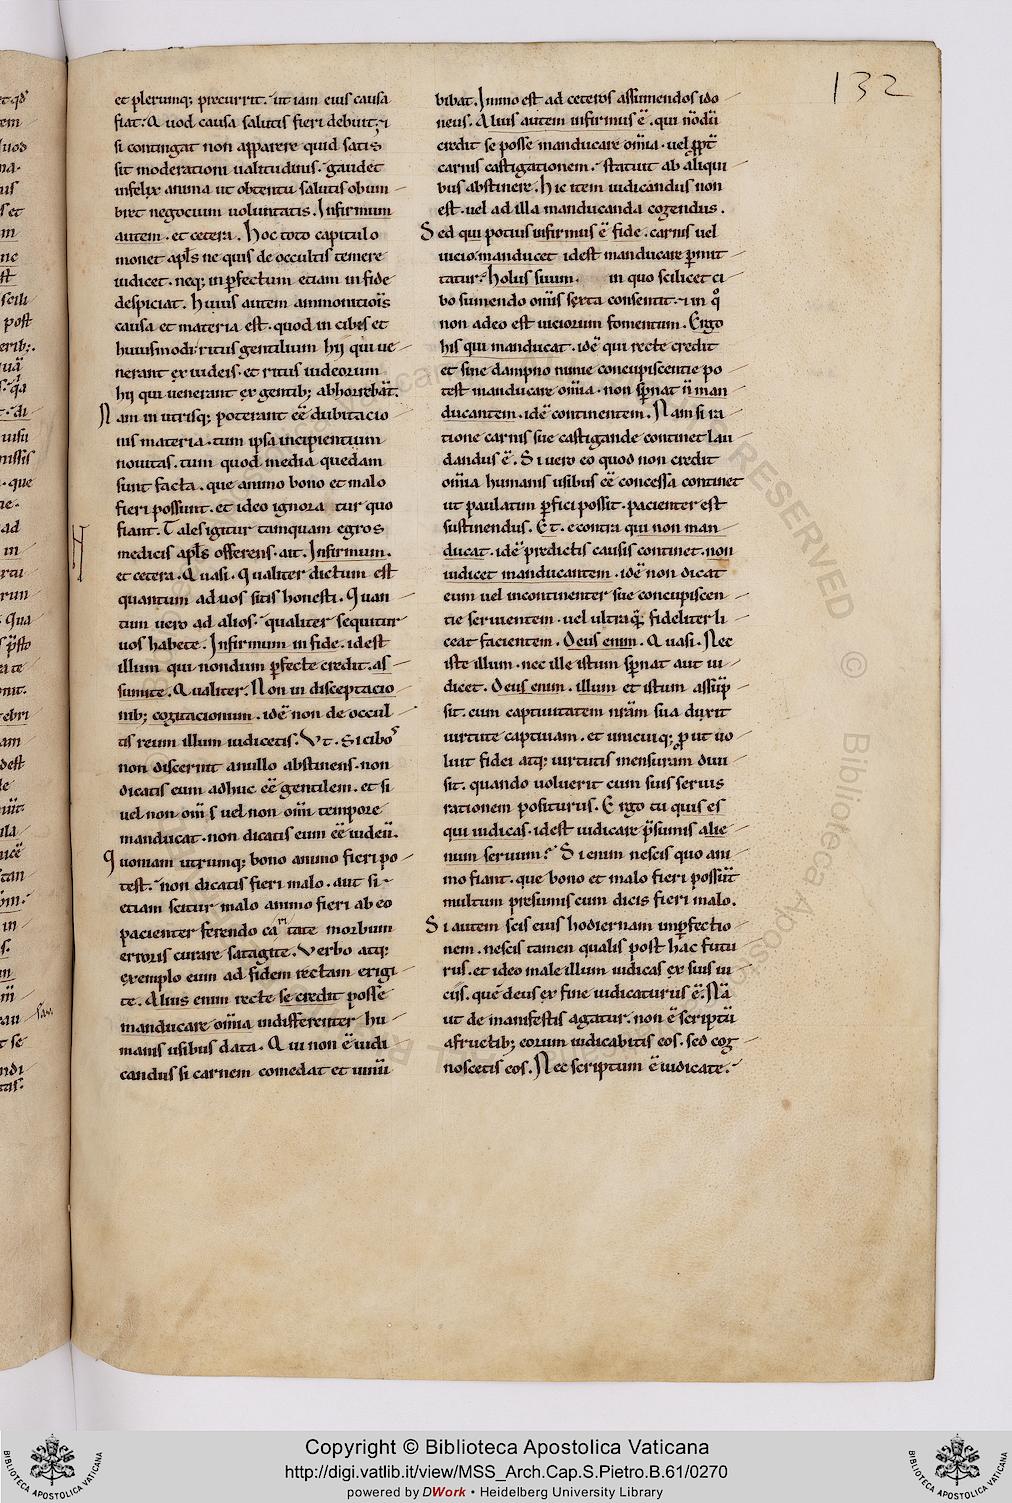 132
et plerumq; precurrit. ut iam eius causa
fiat. Quod causa salutis fieri debuit; 
si contingat non apparere quid satis
sit moderationi ualitudinis. gaudet
infelix anima ut obtentu salutis obum
bret negocium uoluntatis. Infirmum
autem. et cetera. Hoc toto capitulo
monet apl̄s ne quis de occultis temere
iudicet. neq; inꝑfectum etiam in fide
despiciat. Huius autem ammonitiōis
causa et materia est. quod in cibis et
huiusmodi ritus gentilium hij qui ue
nerant ex iudeis. et ritus iudeorum
hij qui uenerant ex gentib; abhorrebāt.
Nam in utrisq; poterant eē dubitacio
nis materia. tum ipsa incipientium
nouitas. tum quod media quedam
sunt facta. que animo bono et malo
fieri possunt. et ideo ignora tur quo
fiant. Tales igitur tamquam egros
medicis apl̄s offerens. ait. Infirmum.
et cetera. Quasi. Qualiter dictum est
quantum ad uos sitis honesti. Quan
tum uero ad alios. qualiter sequitur
uos habete. Infirmum in fide. idest
illum qui nondum ꝑfecte credit. as
sumite. Qualiter. Non in disceptacio
nib; cogitacionum. idē non de occul
tis reum illum iudicetis. Vt. Si cibos
non discernit a nullo abstinens. non
dicatis eum adhuc eē gentilem. et si
uel non om̄is uel non om̄i tempore
manducat. non dicatis eum eē iudeū.
Quoniam utrumq; bono animo fieri po
test. non dicatis fieri malo. aut si
etiam scitur malo animo fieri ab eo
pacienter ferendo caritate morbum
erroris curare satagite. Verbo atq;
exemplo eum ad fidem rectam erigi
te. Alius enim recte se credit posse
manducare om̄ia indifferenter hu
manis usibus data. Qui non ē iudi
candus si carnem comedat et uinū
bibat. Immo est ad ceteros assumendos ido
neus. Alius autem infirmus ē. qui nōdū
credit se posse manducare om̄ia. uel ꝓpt̄
carnis castigationem. statuit ab aliqui
bus abstinere. Hic item iudicandus non
est. uel ad illa manducanda cogendus.
Sed qui potius infirmus ē fide. carnis uel
uicio. manducet idest manducare ꝑmit
tatur. holus suum. in quo scilicet ci
bo sumendo om̄is secta consentit. et in q°
non adeo est uiciorum fomentum. Ergo
his qui manducat. idē qui recte credit
et sine dampno nimie concupiscentie po
test manducare om̄ia. non sꝑnat n̄ man
ducantem. idē continentem. Nam si ra
tione carnis sue castigande continet lau
dandus ē. Si uero eo quod non credit
om̄ia humanis usibus eē concessa continet
ut paulatim ꝑfici possit. pacienter est
sustinendus. Et. econtra qui non man
ducat. idē predictis causis continet. non
iudicet manducantem. idē non dicat
eum uel incontinenter sue concupiscen
tie seruientem. uel ultra q̄ fideliter li
ceat facientem. Deus enim. Quasi. Nec
iste illum. nec ille istum sꝑnat aut iu
dicet. Deus enim. illum et istum assūp
sit. cum captiuitatem nr̄am sua duxit
uirtute captiuam. et unicuiq; ꝓut uo
luit fidei atq; uirtutis mensuram diui
sit. quando uoluerit cum suis seruis
rationem positurus. Ergo tu quis es
qui iudicas. idest iudicare p̄sumis alie
num seruum? Si enim nescis quo ani
mo fiant. que bono et malo fieri possūt
multum presumis cum dicis fieri malo.
Si autem scis eius hodiernam inꝑfectio
nem. nescis tamen qualis post hac futu
rus. et ideo male illum iudicas ex suis ui
ciis. quē deus ex fine iudicaturus ē. Nā
ut de manifestis agatur. non ē scriptū
a fructib; eorum iudicabitis eos. sed cog
noscetis eos. Nec scriptum ē iudicate.
Copyright © Biblioteca Apostolica Vaticana
http://digi.vatlib.it/view/MSS_Arch.Cap.S.Pietro.B.61/0270
powered by DWork • Heidelberg University Library